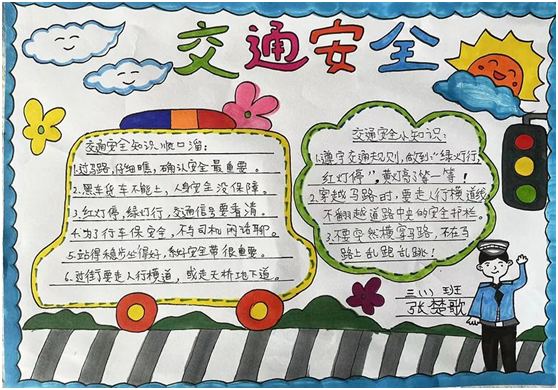 交通安全
交通安全知识顺口溜：
1.过马路，仔细瞧，确认安全最重要。
2.黑车货车不能上，人身安全没保障。
3.红灯停，绿灯行，交通信号要看清。
4.为了行车保安全，不与司机闲话聊。
5.站得稳步坐得好，系好安全带很重要。
6.过街要走人行横道，或走天桥地下道。
交通安全小知识：
1.遵守交通规则，做到“绿灯行，
红灯停”，黄灯亮了等一等！
2.穿越马路时，要走人行横道线
不翻越道路中央的安全护栏。
3.不要突然横穿马路，不在马
路上乱跑乱跳！
三（1）班
张楚歌